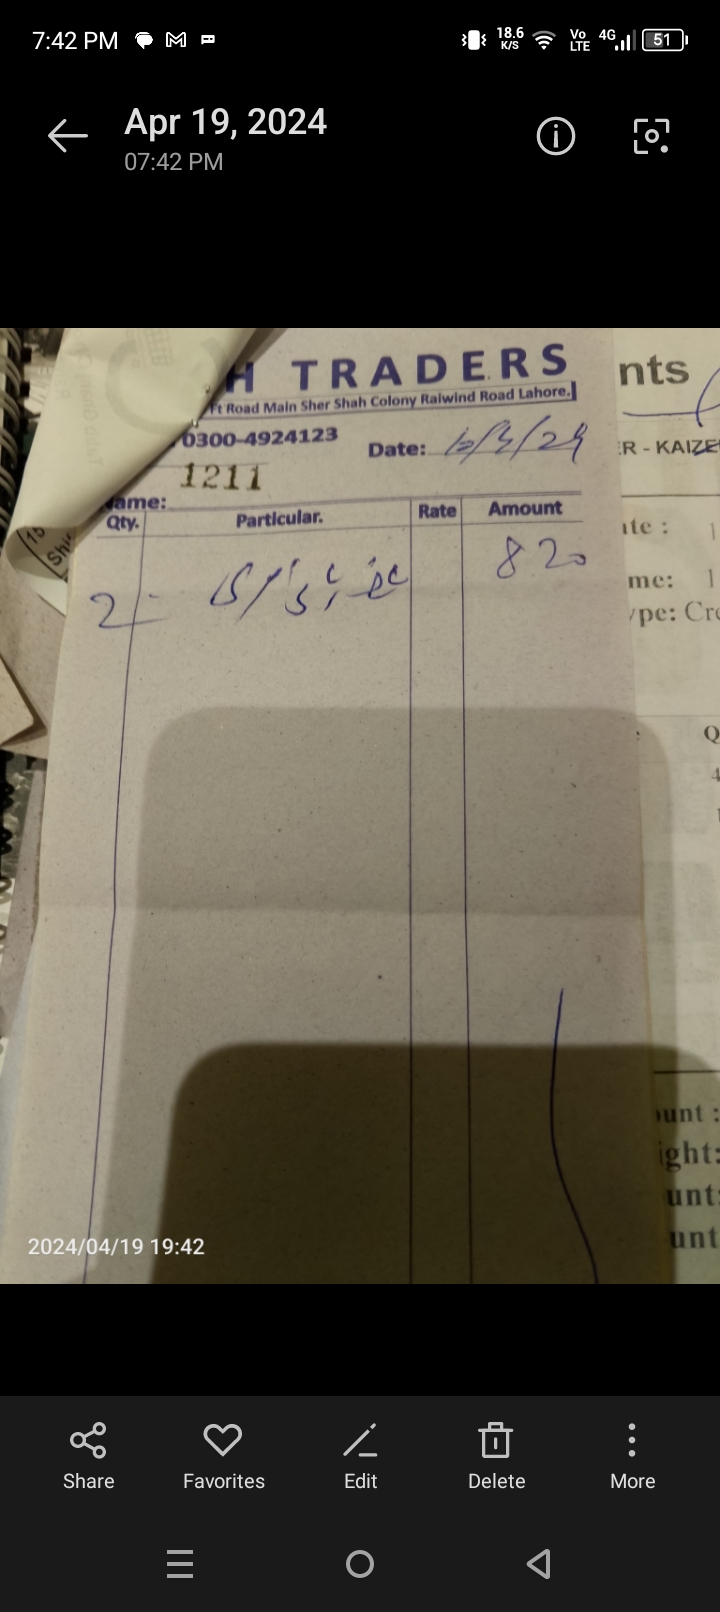 7:42 PM 18.6 K/S Vo LTE 4G 51
Apr 19, 2024
07:42 PM
H TRADERS
Ft Road Main Sher Shah Colony Raiwind Road Lahore.
0300-4924123
Date:
1211
Name:
Qty. Particular. Rate Amount
2 820
nts
ER - KAIZE
ate :
me:
ype: Cre
Q
ount :
ight:
unt:
unt
2024/04/19 19:42
Share Favorites Edit Delete More